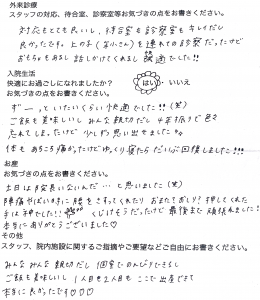 外来診療
スタッフの対応、待合室、診察室等お気づきの点をお書きください。
対応もとても良いし、待合室も診察室もキレイだし
良かったです。上の子(お兄さん)を連れての診察だったけど
おもちゃもあるし話しかけてくれるし快適でした!!
入院生活
快適にお過ごしになれましたか? はい・いいえ
お気づきの点をお書きください。
ずーっといたいくらい快適でした!!(笑)
ご飯も美味しいしみんな親切だし4年振りで色々
忘れてしまっていたけど少しずつ思い出せました。
体もあちこち痛かったけどゆっくり寝れたらだいぶ回復しました!!!
お産
土日は院長いないんだ…と思いました(笑)
陣痛やばい時に腰をさすってくれたり おまたおしり?押してくれた
手は神でした!! くじけそうだったけど最後まで頑張れました!
本当にありがとうございました♡
その他
スタッフ、院内施設に関するご指摘やご要望などご自由にお書きください。
みんなみんな親切だし個室でのんびりできるし
ご飯も美味しいし 1人目も2人目もここで出産できて
本当に良かったです♡♡♡